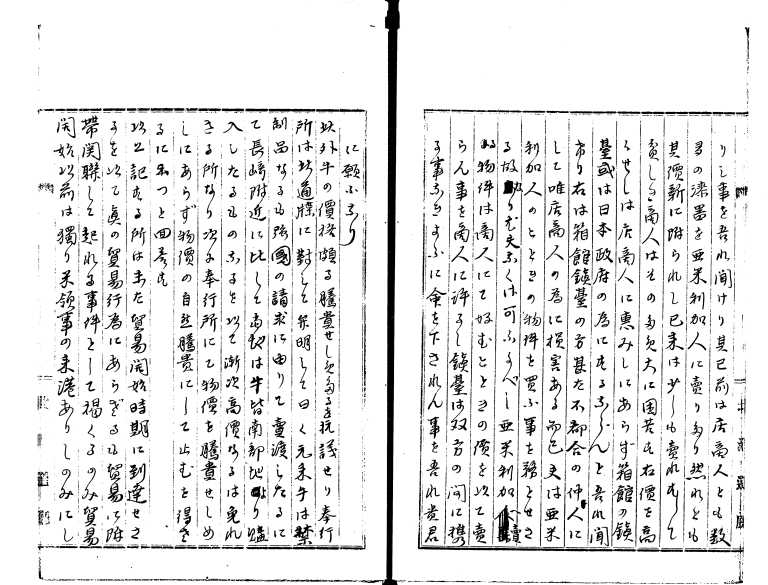 りと事を吾れ聞けり其已前は店商人とも数
多の漆器を亜米利加人に賣りたり然れとも
其價新に附られし已来は少しも賣れすして
貧しき商人はその為大に困苦す右價を高
くせしは店商人に惠みしにあらず箱館の鎮
臺或は日本政府の為にするならんと吾れ聞
り右は箱館鎮臺の方甚た不都合の仲人に
して唯店商人の為に損害ある而已又は亜米
利加人のときの物件を買ふ事を
る故
物件は商人にて好むときの價を以て賣
らん事を商人に許るし鎮臺は双方の間に携
る事なきように命を下されん事を吾れ貴君
に願ふなり
此外牛の價格頗る騰貴せし為抗議せり奉行
所は此通牒に對して弁明して曰く元来牛は禁
制品なるも強國の請求に由りて賣渡したるに
て長崎附近に比して當地は牛皆南部地より輸
入したるものなるを以て漸次高價なるは免れ
さる所なり次に奉行所にて物價を騰貴せしめ
しにあらず物價の自然騰貴にして止むを得さ
るに出つと回答す
以上記する所は未た貿易開始時期に到達せさ
るを以て真の貿易行為にあらざるも貿易に附
帯関聯して起れる事件として掲くるのみ貿易
開始以前は獨り米領事の来港ありしのみにし